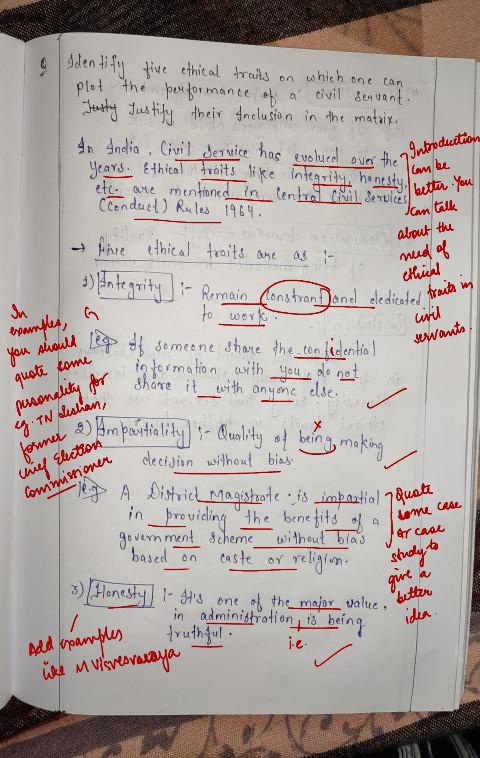 Q Identify five ethical traits on which one can
plot the performance of a civil servant.
Justy Justify their Inclusion in the matrix.
In India, Civil Service has evolved over the
years. Ethical traits like integrity, honesty,
etc. are mentioned in Central Civil Services
(Conduct) Rules 1964.
Introduction
can be
better. You
can talk
about the
need of
ethical
traits in
civil
servants.
→ Five ethical traits are as :-
1) Integrity :- Remain constrant and dedicated
to work.
eg If someone share the confidential
information, with you, do not
share it with anyone else.
In
examples,
you should
quote some
personality for
eg. TN Seshan,
former
chief Election
Commissioner
2) Impartiality :- Quality of being making
decision without bias.
e.g A District Magistrate is impartial
in providing the benefits of a
government scheme without bias
based on caste or religion.
Quote
some case
or case
study to
give a
better
idea.
3) Honesty :- It's one of the major value,
in administration, is being
truthful.
i.e.
Add examples
like M Visvesvaraya